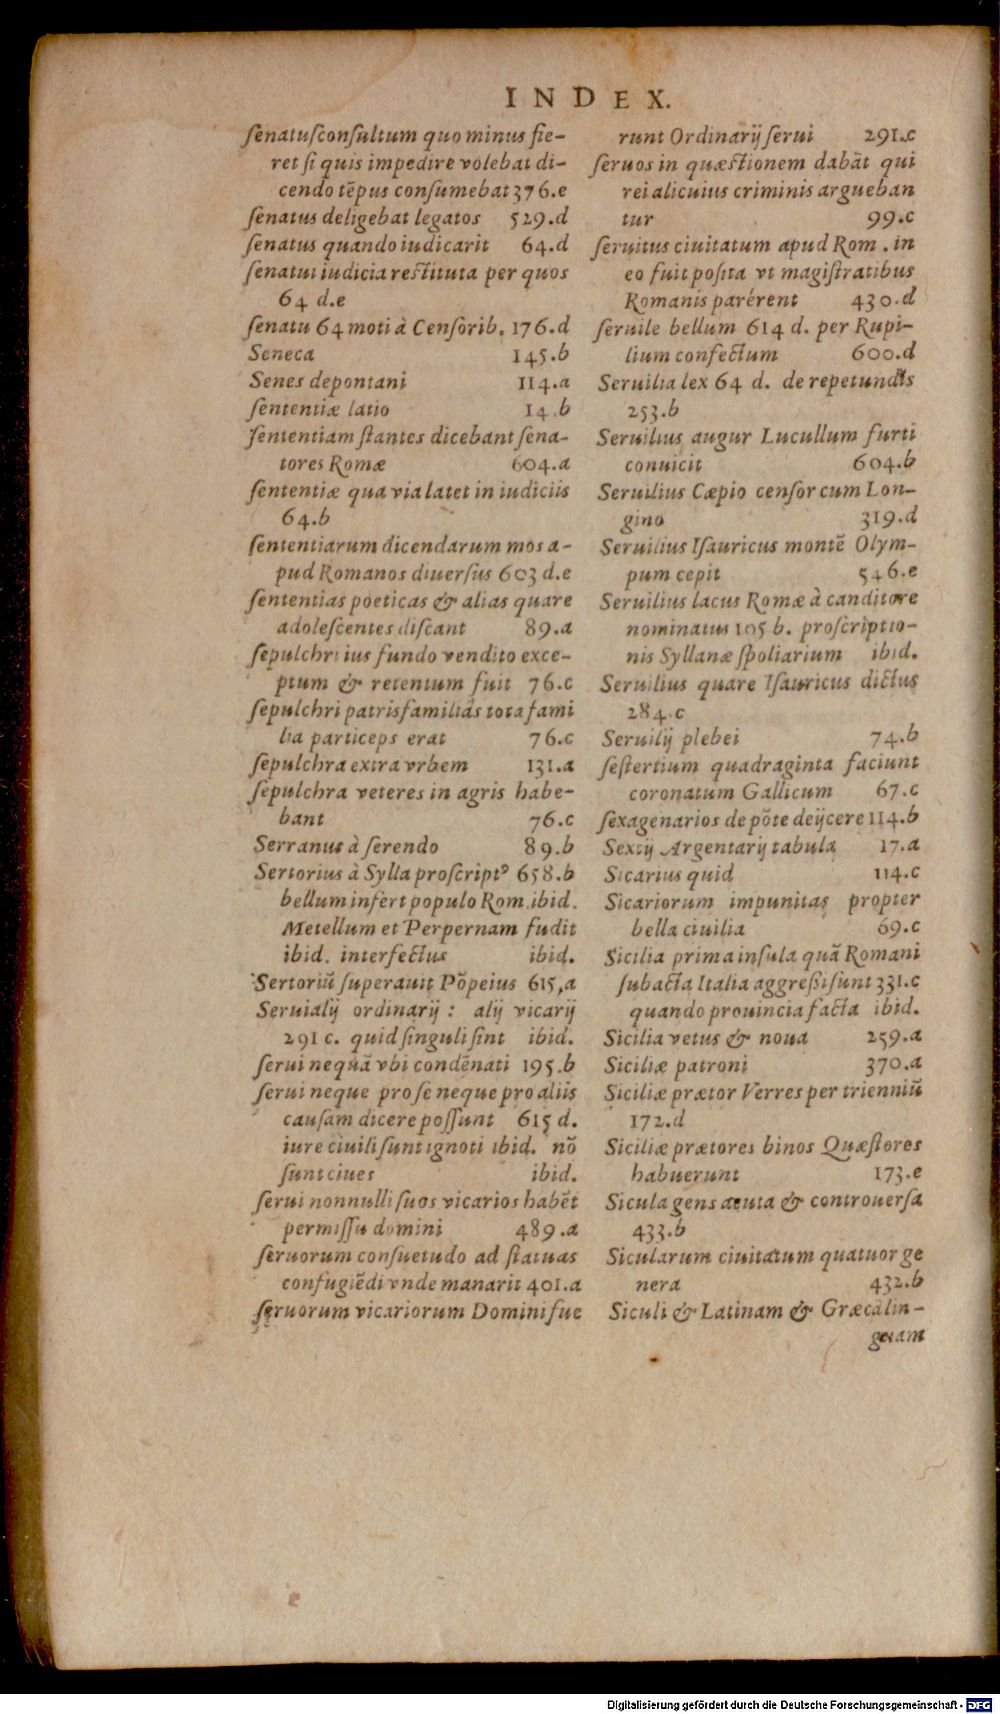 INDEX.
ſenatuſconſultum quo minus fie-
ret ſi quis impedire volebat di-
cendo tēpus conſumebat 376.e
ſenatus deligebat legatos 529.d
ſenatus quando iudicarit 64.d
ſenatui iudicia reſtituta per quos
64 d.e
ſenatu 64 moti à Cenſorib. 176.d
Seneca 145.b
Senes depontani 114.a
ſententiæ latio 14.b
ſententiam ſtantes dicebant ſena-
tores Romæ 604.a
ſententiæ qua via latet in iudiciis
64.b
ſententiarum dicendarum mos a-
pud Romanos diuerſus 603 d.e
ſententias poeticas & alias quare
adoleſcentes diſcant 89.a
ſepulchri ius fundo vendito exce-
ptum & retentum fuit 76.c
ſepulchri patrisfamiliâs tota fami
lia particeps erat 76.c
ſepulchra extra vrbem 131.a
ſepulchra veteres in agris habe-
bant 76.c
Serranus à ſerendo 89.b
Sertorius à Sylla proſcriptꝰ 658.b
bellum infert populo Rom. ibid.
Metellum et Perpernam fudit
ibid. interfectus ibid.
Sertoriū ſuperauit Pōpeius 615.a
Serui alij ordinarij : alij vicarij
291 c. quid ſinguli ſint ibid.
ſerui nequā vbi condēnati 195.b
ſerui neque pro ſe neque pro aliis
cauſam dicere poſſunt 615 d.
iure ciuili ſunt ignoti ibid. nō
ſunt ciues ibid.
ſerui nonnulli ſuos vicarios habēt
permiſſu domini 489.a
ſeruorum conſuetudo ad ſtatuas
confugiēdi vnde manarit 401.a
ſeruorum vicariorum Domini fue
runt Ordinarij ſerui 291.c
ſeruos in quæſtionem dabāt qui
rei alicuius criminis argueban
tur 99.c
ſeruitus ciuitatum apud Rom. in
eo fuit poſita vt magiſtratibus
Romanis parérent 430.d
ſeruile bellum 614 d. per Rupi-
lium confectum 600.d
Seruilia lex 64 d. de repetundis
253.b
Seruilius augur Lucullum furti
conuicit 604.b
Seruilius Cæpio cenſor cum Lon-
gino 319.d
Seruilius Iſauricus montē Olym-
pum cepit 546.e
Seruilius lacus Romæ à canditore
nominatus 105 b. proſcriptio-
nis Syllanæ ſpoliarium ibid.
Seruilius quare Iſauricus dictus
284.c
Seruilij plebei 74.b
ſeſtertium quadraginta faciunt
coronatum Gallicum 67.c
ſexagenarios de pōte deijcere 114.b
Sextij Argentarij tabula 17.a
Sicarius quid 114.c
Sicariorum impunitas propter
bella ciuilia 69.c
Sicilia prima inſula quā Romani
ſubacta Italia aggreßi ſunt 331.c
quando prouincia facta ibid.
Sicilia vetus & noua 259.a
Siciliæ patroni 370.a
Siciliæ prætor Verres per trienniū
172.d
Siciliæ prætores binos Quæſtores
habuerunt 173.e
Sicula gens acuta & controuerſa
433.b
Sicularum ciuitatum quatuor ge
nera 432.b
Siculi & Latinam & Græcā lin-
guam
Digitalisierung gefördert durch die Deutsche Forschungsgemeinschaft - DFG